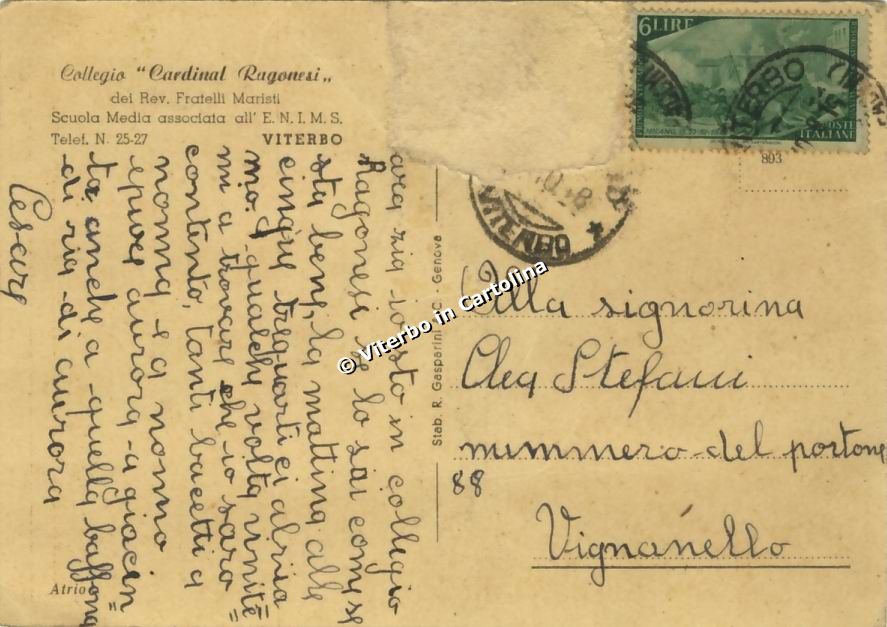 Collegio "Cardinal Ragonesi"
dei Rev. Fratelli Maristi
Scuola Media associata all' E. N. I. M. S.
Telef. N. 25-27 VITERBO
ara zia io sto in collegio
Ragonesi se lo sai come se
sta bene, la mattina alle
cinque trequarti ci alzia
mo. qualche volta venite
mi a trovare che io saro
contento, tanti bacetti a
nonna e a nonno
epure aurora a giacin
ta anche a quella baffona
di zia di aurora
Cesare
Atrio
Stab. R. Gasparini - C - Genova
6 LIRE
POSTE
ITALIANE
VITERBO
VITERBO
893
Alla signorina
Clea Stefani
nummero del portone
88
Vignanello
© Viterbo in Cartolina